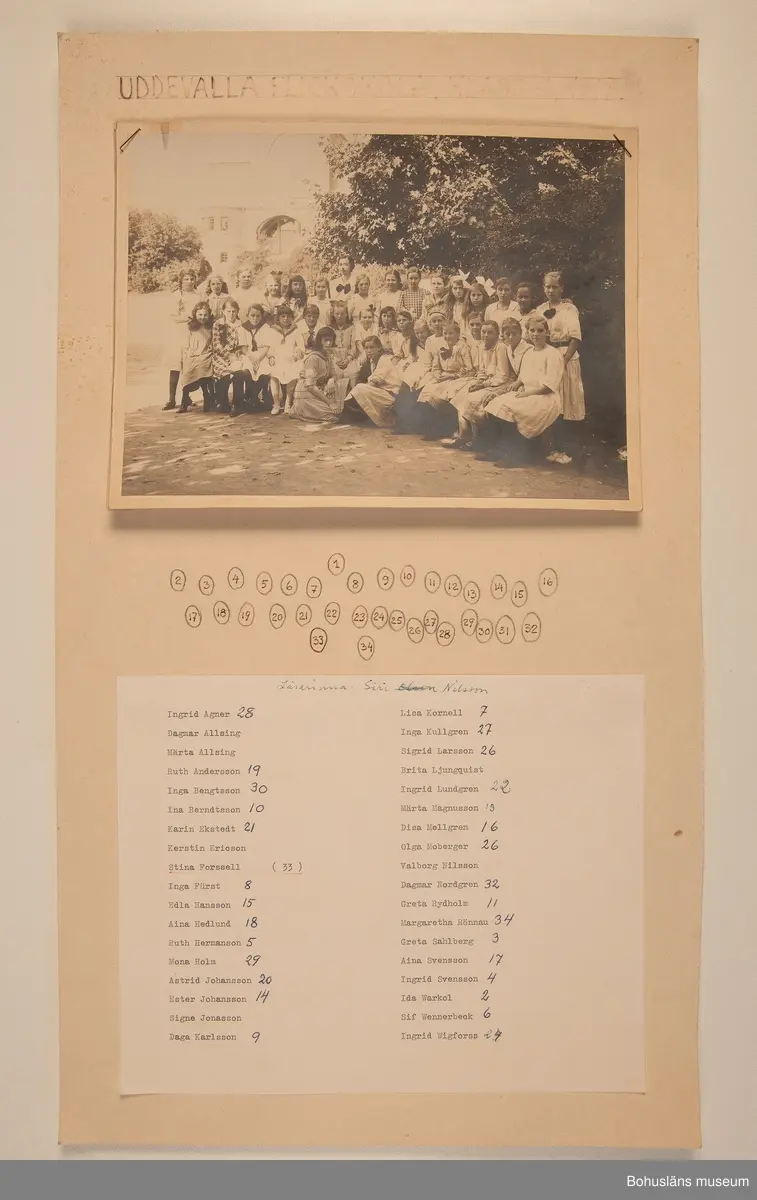 UDDEVALLA
1
2 3 4 5 6 7 8 9 10 11 12 13 14 15 16
17 18 19 20 21 22 23 24 25 26 27 28 29 30 31 32
33 34
Lärarinna: Siri Nilsson
Ingrid Agner 28
Dagmar Allsing
Märta Allsing
Ruth Andersson 19
Inga Bengtsson 30
Ina Berndtsson 10
Karin Ekstedt 21
Kerstin Ericson
Stina Forssell (33)
Inga Fürst 8
Edla Hansson 15
Aina Hedlund 18
Ruth Hermanson 5
Mona Holm 29
Astrid Johansson 20
Ester Johansson 14
Signe Jonasson
Daga Karlsson 9
Lisa Kornell 7
Inga Kullgren 27
Sigrid Larsson 26
Brita Ljungquist
Ingrid Lundgren 22
Märta Magnusson 13
Disa Mellgren 16
Olga Moberger 26
Valborg Nilsson
Dagmar Nordgren 32
Greta Rydholm 11
Margaretha Rönnau 34
Greta Sahlberg 3
Aina Svensson 17
Ingrid Svensson 4
Ida Warkol 2
Sif Wennerbeck 6
Ingrid Wigforss 24
Bohusläns museum